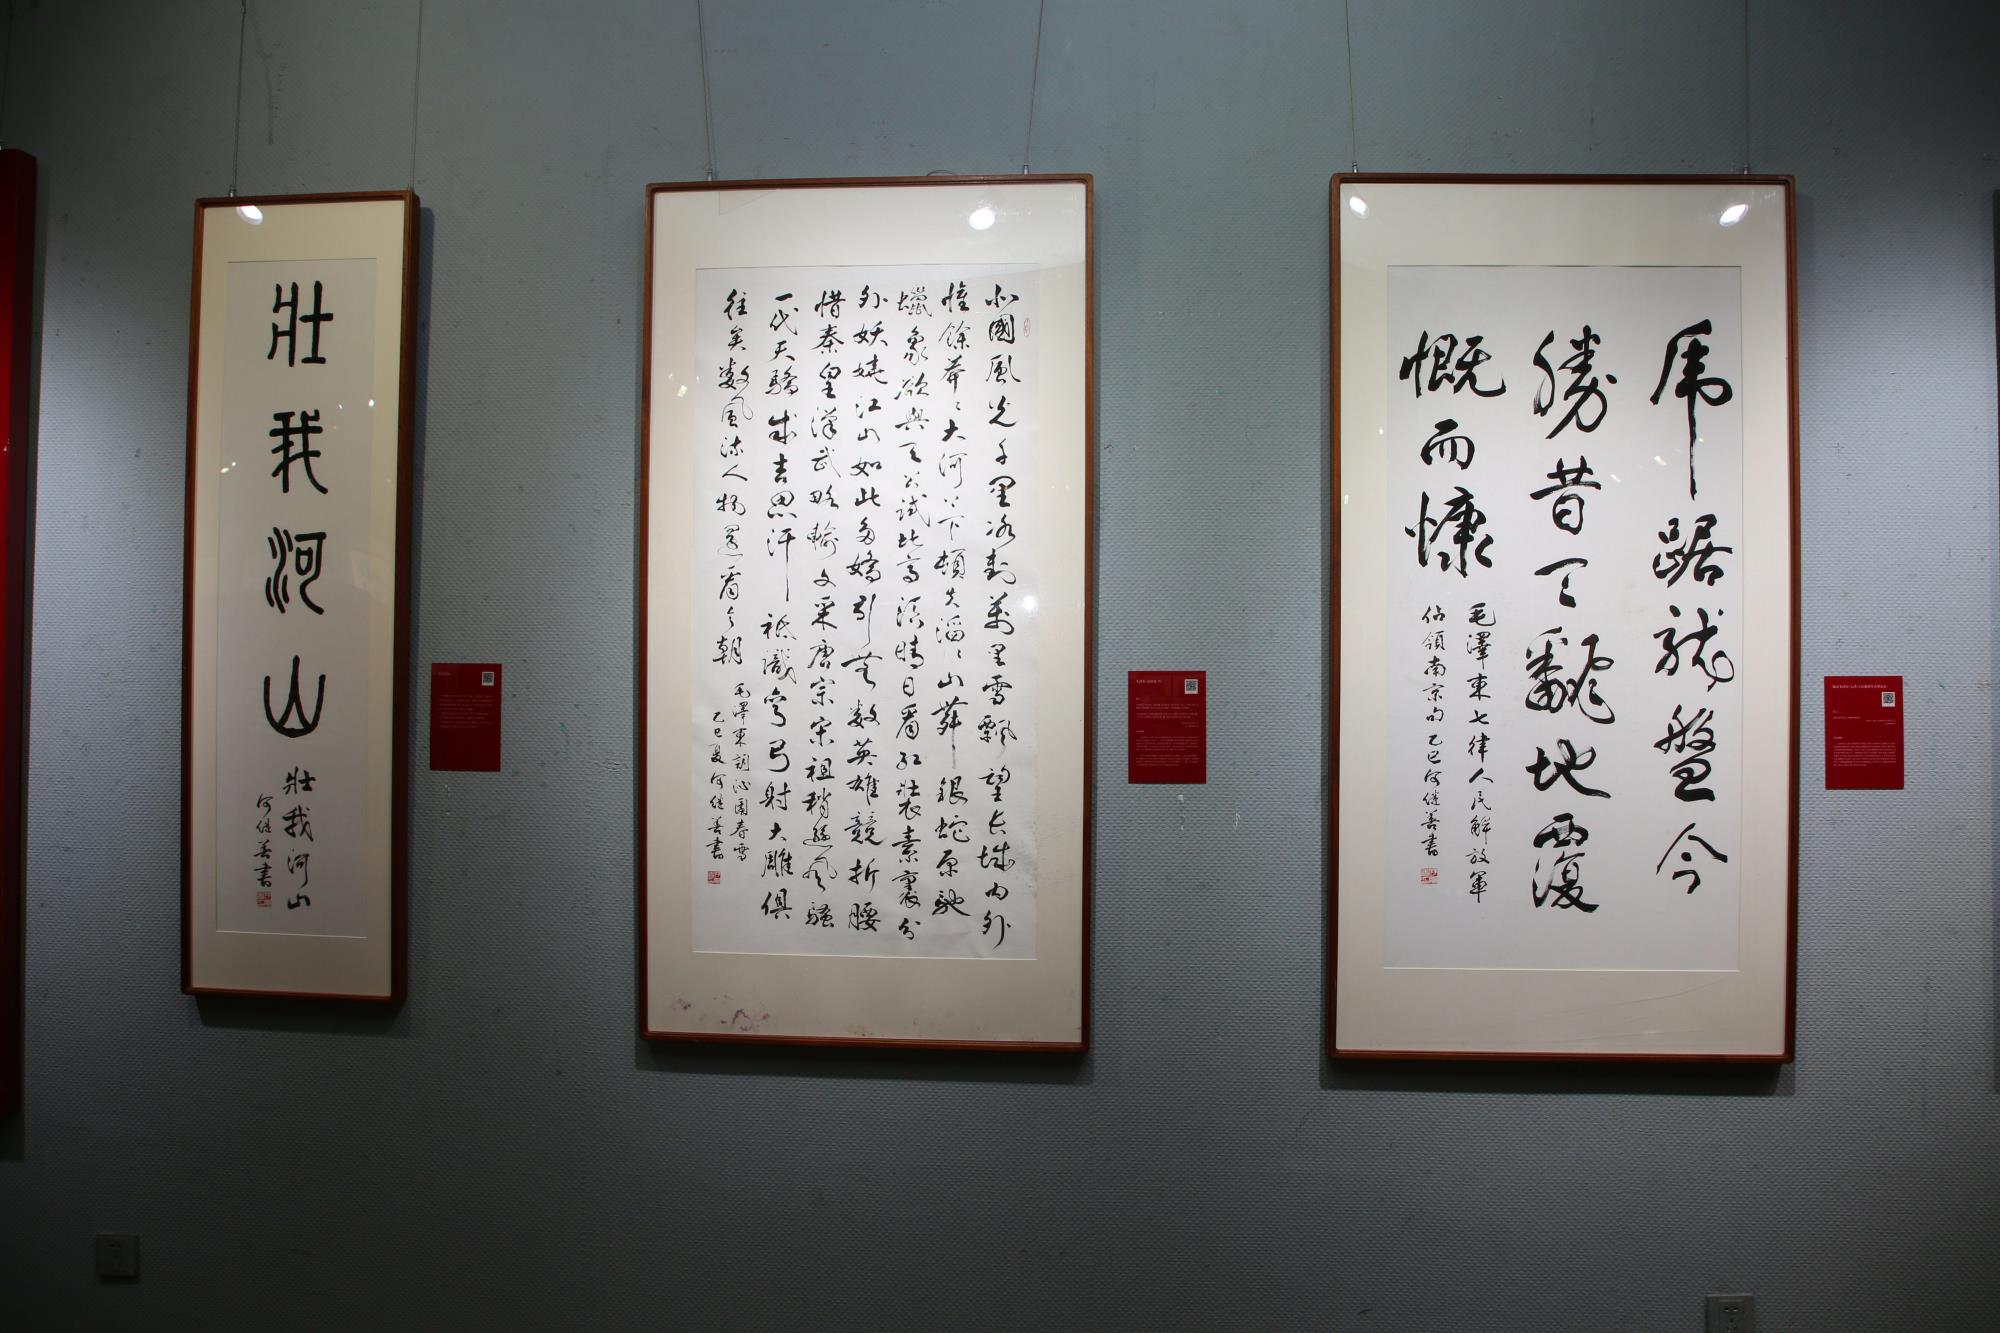 壯我河山
壯我河山
何继善書
北國風光千里冰封萬里雪飄望長城内外
惟餘莽々大河上下頓失滔々山舞銀蛇原馳
蠟象欲與天公試比高須晴日看紅裝素裹分
外妖嬈江山如此多嬌引無数英雄競折腰
惜秦皇漢武略輸文采唐宗宋祖稍遜風騷
一代天驕成吉思汗祗識彎弓射大雕俱
往矣数風流人物還看今朝
毛澤東詞沁園春雪
乙巳夏何继善書
虎踞龍盤今
勝昔天翻地覆
慨而慷
毛澤東七律人民解放軍
佔領南京句乙巳何继善書